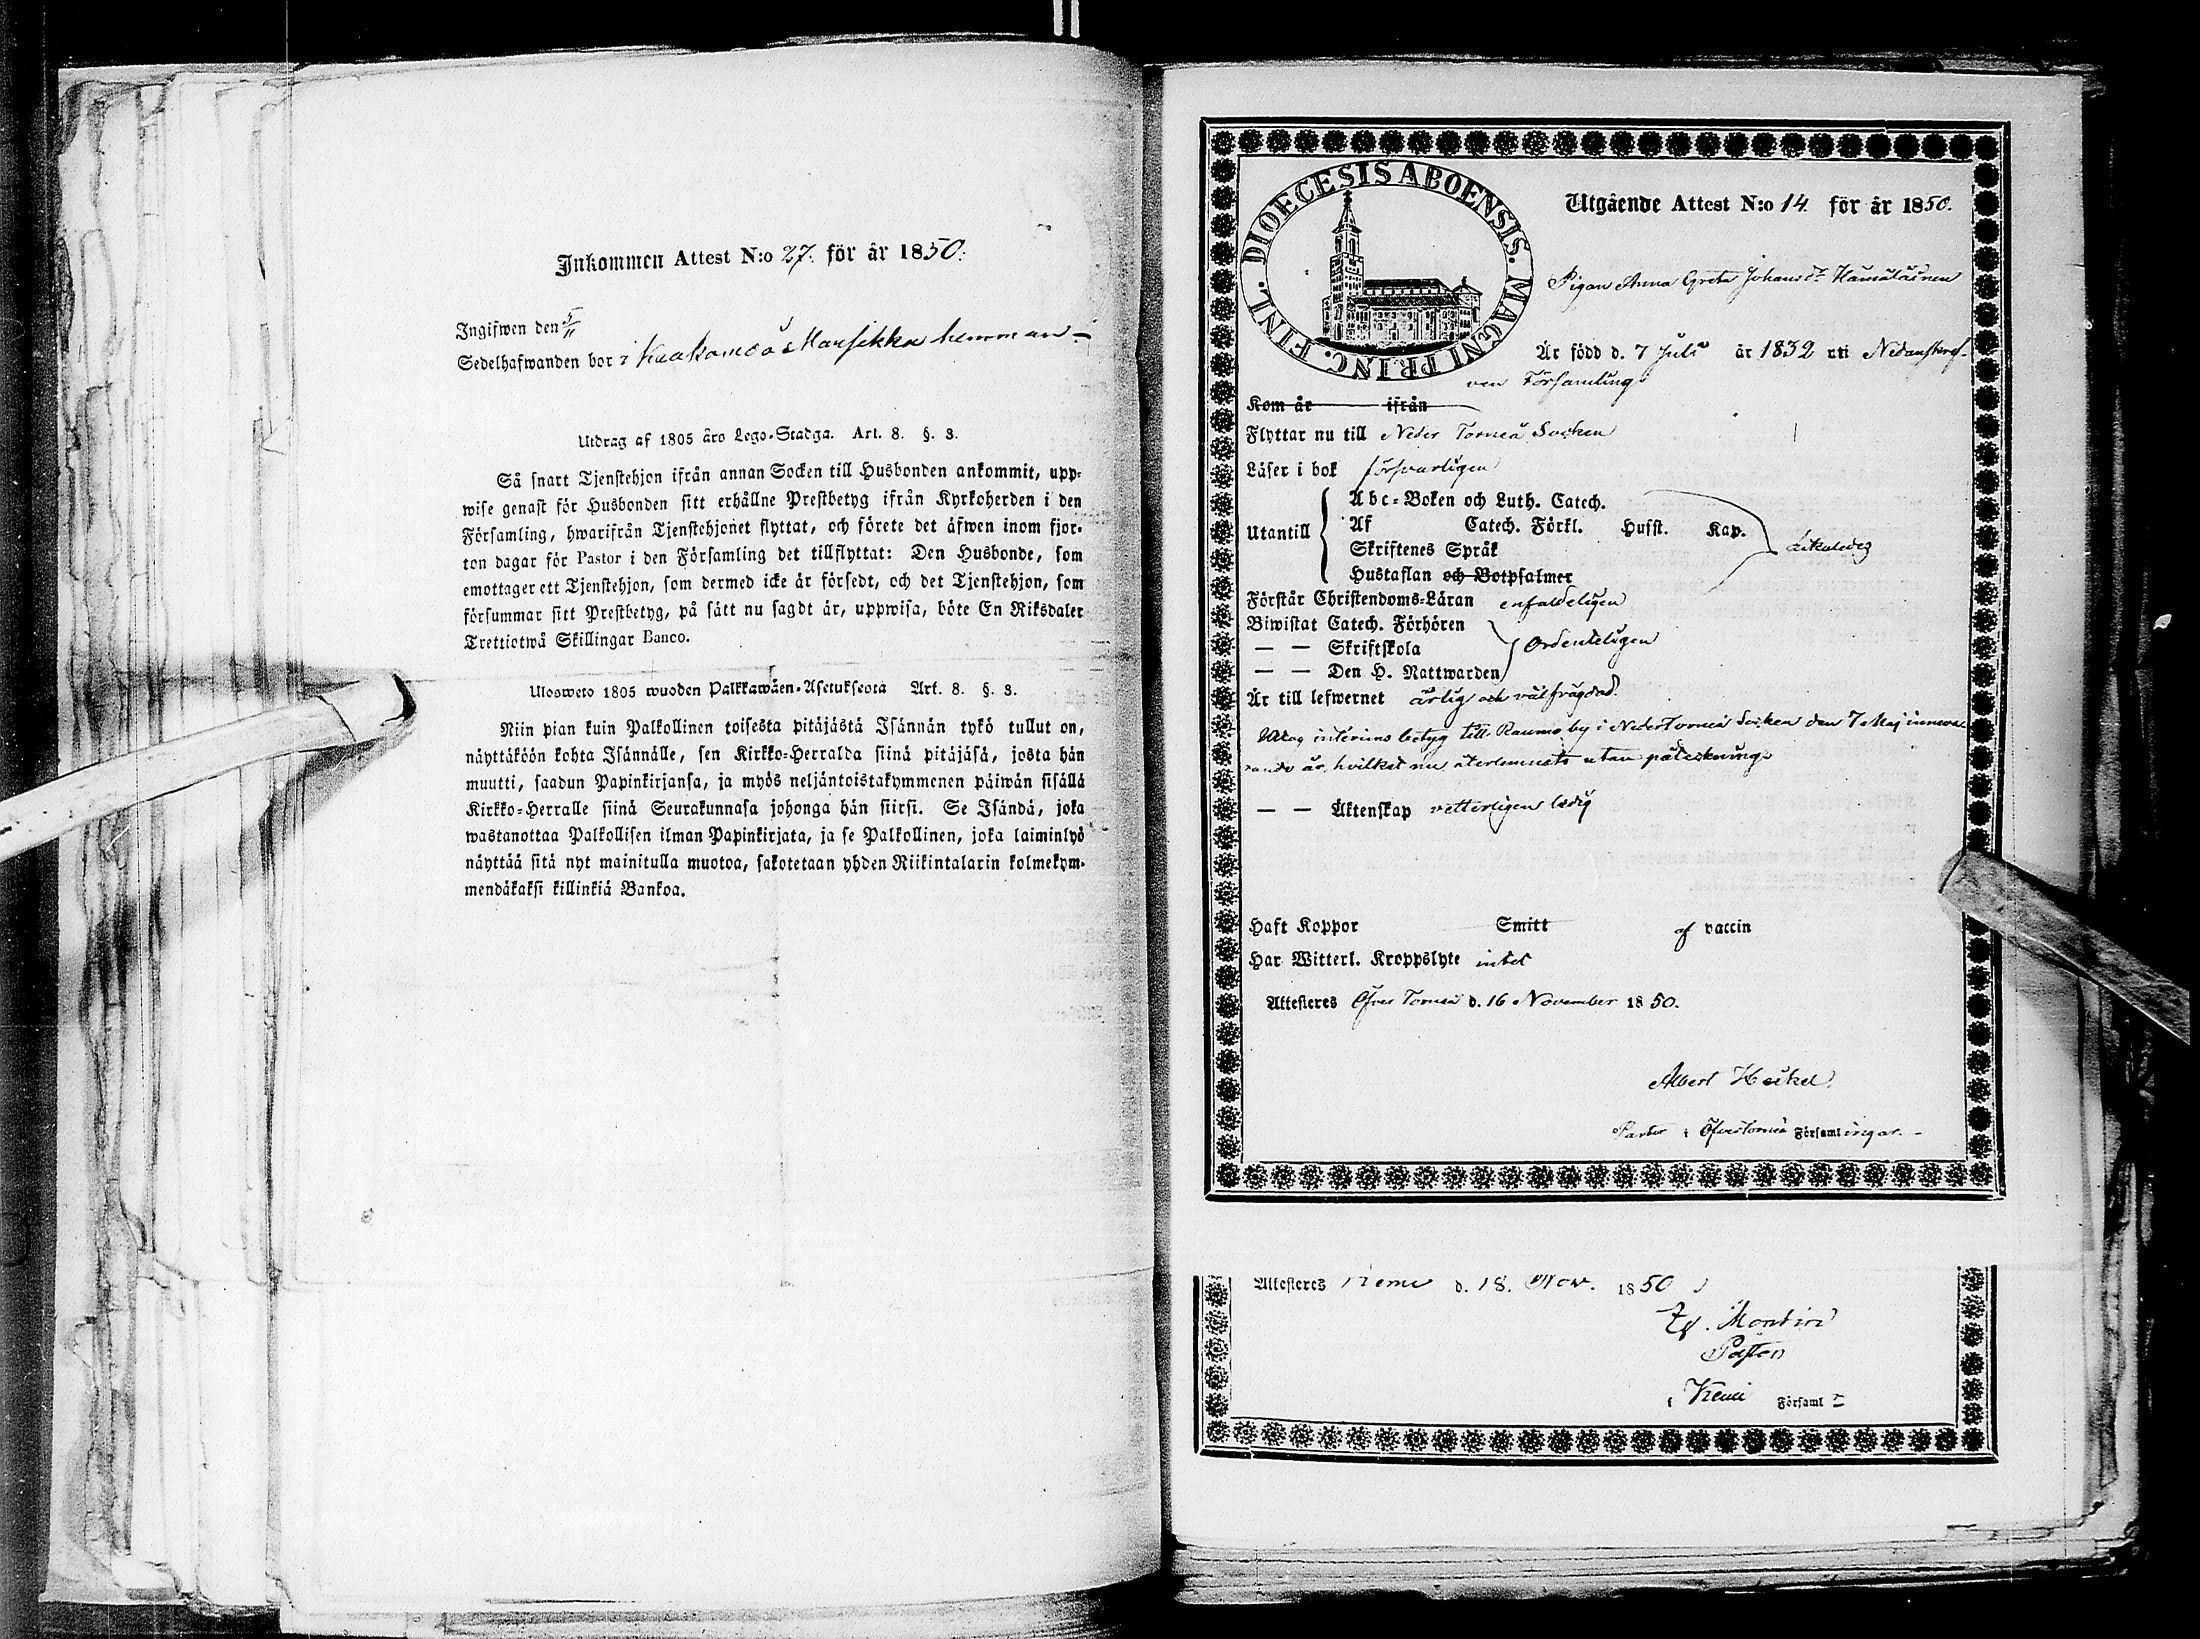 Inkommen Attest N:o 27. för år 1850.
Ingifwen den 5/11
Sedelhafwanden bor i Kaakamo å Mansikka hemman –
Utdrag af 1805 åro Lego-Stadga. Art. 8. §. 3.
Så snart Tjenstehjon ifrån annan Socken till Husbonden ankommit, upp-
wise genast för Husbonden sitt erhållne Prestbetyg ifrån Kyrkoherden i den
Församling, hwarifrån Tjenstehjonet flyttat, och förete det äfwen inom fjor-
ton dagar för Pastor i den Församling det tillflyttat: Den Husbonde, som
emottager ett Tjenstehjon, som dermed icke är försedt, och det Tjenstehjon, som
försummar sitt Prestbetyg, på sätt nu sagdt är, uppwisa, böte En Riksdaler
Trettiotwå Skillingar Banco.
Ulosweto 1805 wuoden Palkkawäen-Asetuksesta Art. 8. §. 3.
Niin pian kuin Palkollinen toisesta pitäjästä Isännän tykö tullut on,
näyttäköön kohta Isännälle, sen Kirkko-Herralda siinä pitäjäsä, josta hän
muutti, saadun Papinkirjansa, ja myös neljäntoistakymmenen päiwän sisällä
Kirkko-Herralle siinä Seurakunnasa johonga hän siirsi. Se Isändä, joka
wastanottaa Palkollisen ilman Papinkirjata, ja se Palkollinen, joka laiminlyö
näyttää sitä nyt mainitulla muotoa, sakotetaan yhden Riikintalarin kolmekym-
mendäkaksi killinkiä Bankoa.
DIOECESIS ABOENSIS. MAGNI PRINC. FINL.
Utgående Attest N:o 14. för år 1850.
Pigan Anna Greta Johansdr Hämäläinen
Är född d. 7 Juli år 1832 uti Nedanskref-
ven Församling.
Kom år ifrån
Flyttar nu till Neder Torneå Socken
Läser i bok försvarligen
Utantill
Abc-Boken och Luth. Catech.
Af Catech. Förkl. Hufst. Kap.
Skriftenes Språk
Hustaflan och Botpsalmer
Likaledes
Förstår Christendoms-Läran enfaldeligen
Biwistat Catech. Förhören
— — Skriftskola
— — Den H. Nattwarden
Ordenteligen
Är till lefwernet ärlig och välfrägdad.
Uttog interims betyg till Raumo by i Neder Torneå Socken den 7 Maj inneva-
rande år, hvilket nu återlemnats utan påteckning.
— — Äktenskap vetterligen ledig
Haft Koppor Smitt af vaccin
Har Witterl. Kroppslyte intet
Attesteres Öfver Torneå d. 16 November 1850.
Albert Heikel.
Pastor i Öfvertorneå Församlingar. –
Attesteres Kemi d. 18. Nov. 1850
Pastor
i Kemi Församl